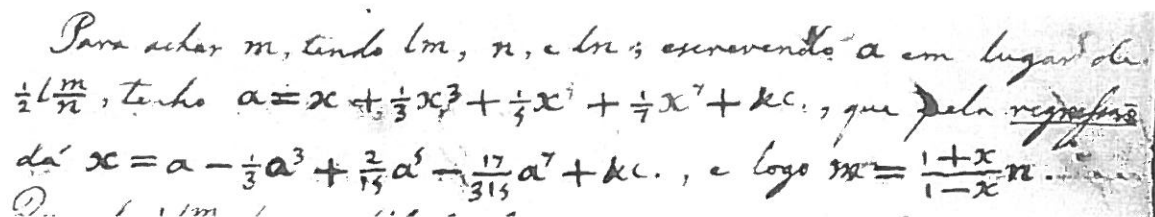 Para achar m, tendo lm, n, e ln; escrevendo a em lugar de
½ l m/n, tenho a = x + ⅓x³ + ⅕x⁵ + 1/7 x⁷ + &c., que pela regressão
dá x = a − ⅓a³ + 2/15 a⁵ − 17/315 a⁷ + &c., e logo m = (1+x)/(1−x) n.